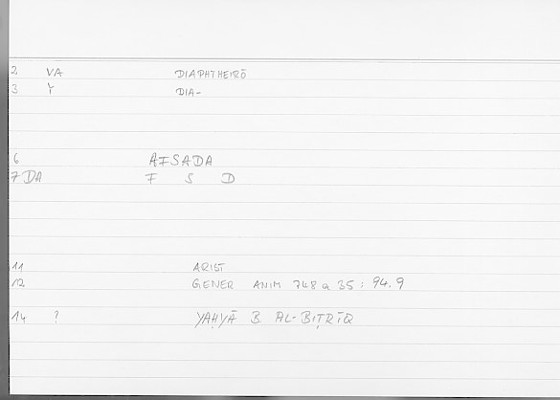 2 VA DIAPHTHEIRŌ
3 Y DIA-
6 AFSADA
7 DA F S D
11 ARIST
12 GENER ANIM 748 a 35 : 94.9
14 ? YAḤYĀ B AL-BIṬRĪQ